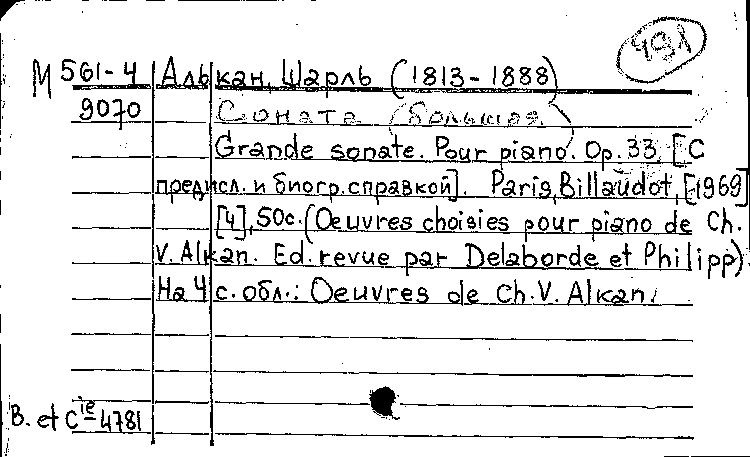 491
М 561-4 Алькан, Шарль (1813-1888)
9070 Соната (большая)
Grande sonate. Pour piano. Op. 33. [С
предисл. и биогр. справкой]. Paris, Billaudot, [1969]
[4], 50с. (Oeuvres choisies pour piano de Ch.
V. Alkan. Ed. revue par Delaborde et Philipp).
На 4 с. обл.: Oeuvres de Ch. V. Alkan.
B. et Cie 4781